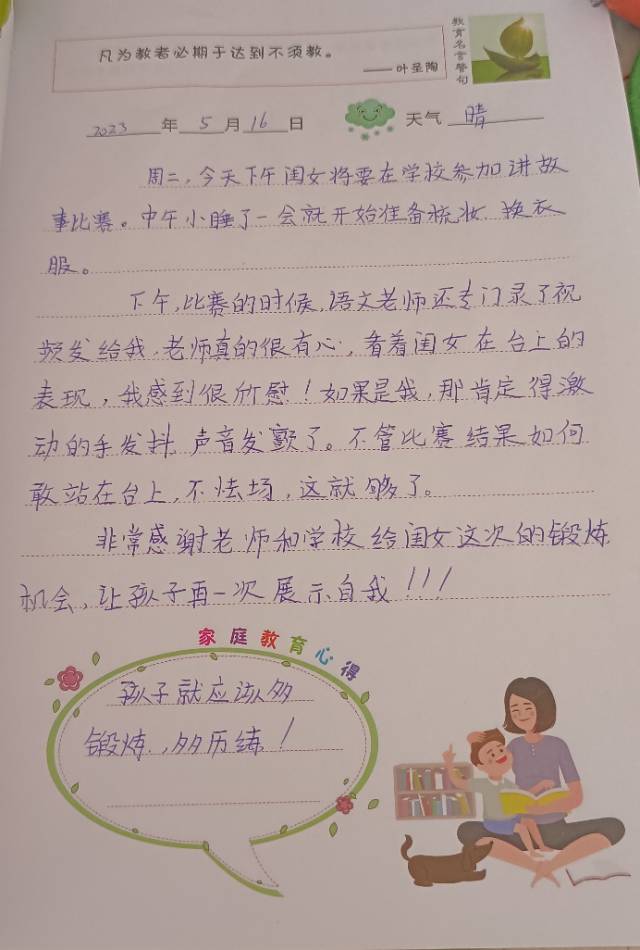 凡为教者必期于达到不须教。
——叶圣陶
教育名言警句
2023年5月16日 天气 晴
周二，今天下午闺女将要在学校参加讲故
事比赛。中午小睡了一会就开始准备梳妆 换衣
服。
下午，比赛的时候，语文老师还专门录了视
频发给我，老师真的很有心，看着闺女在台上的
表现，我感到很欣慰！如果是我，那肯定得激
动的手发抖，声音发颤了。不管比赛结果如何
敢站在台上，不怯场，这就够了。
非常感谢老师和学校给闺女这次的锻炼
机会，让孩子再一次展示自我！！！
家庭教育心得
孩子就应该多
锻炼，多历练！